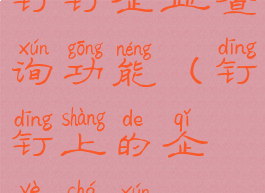 钉钉企业查
xún gōng néng dīng
询功能（钉
dīng shàng de qǐ
钉上的企
yè chá xún